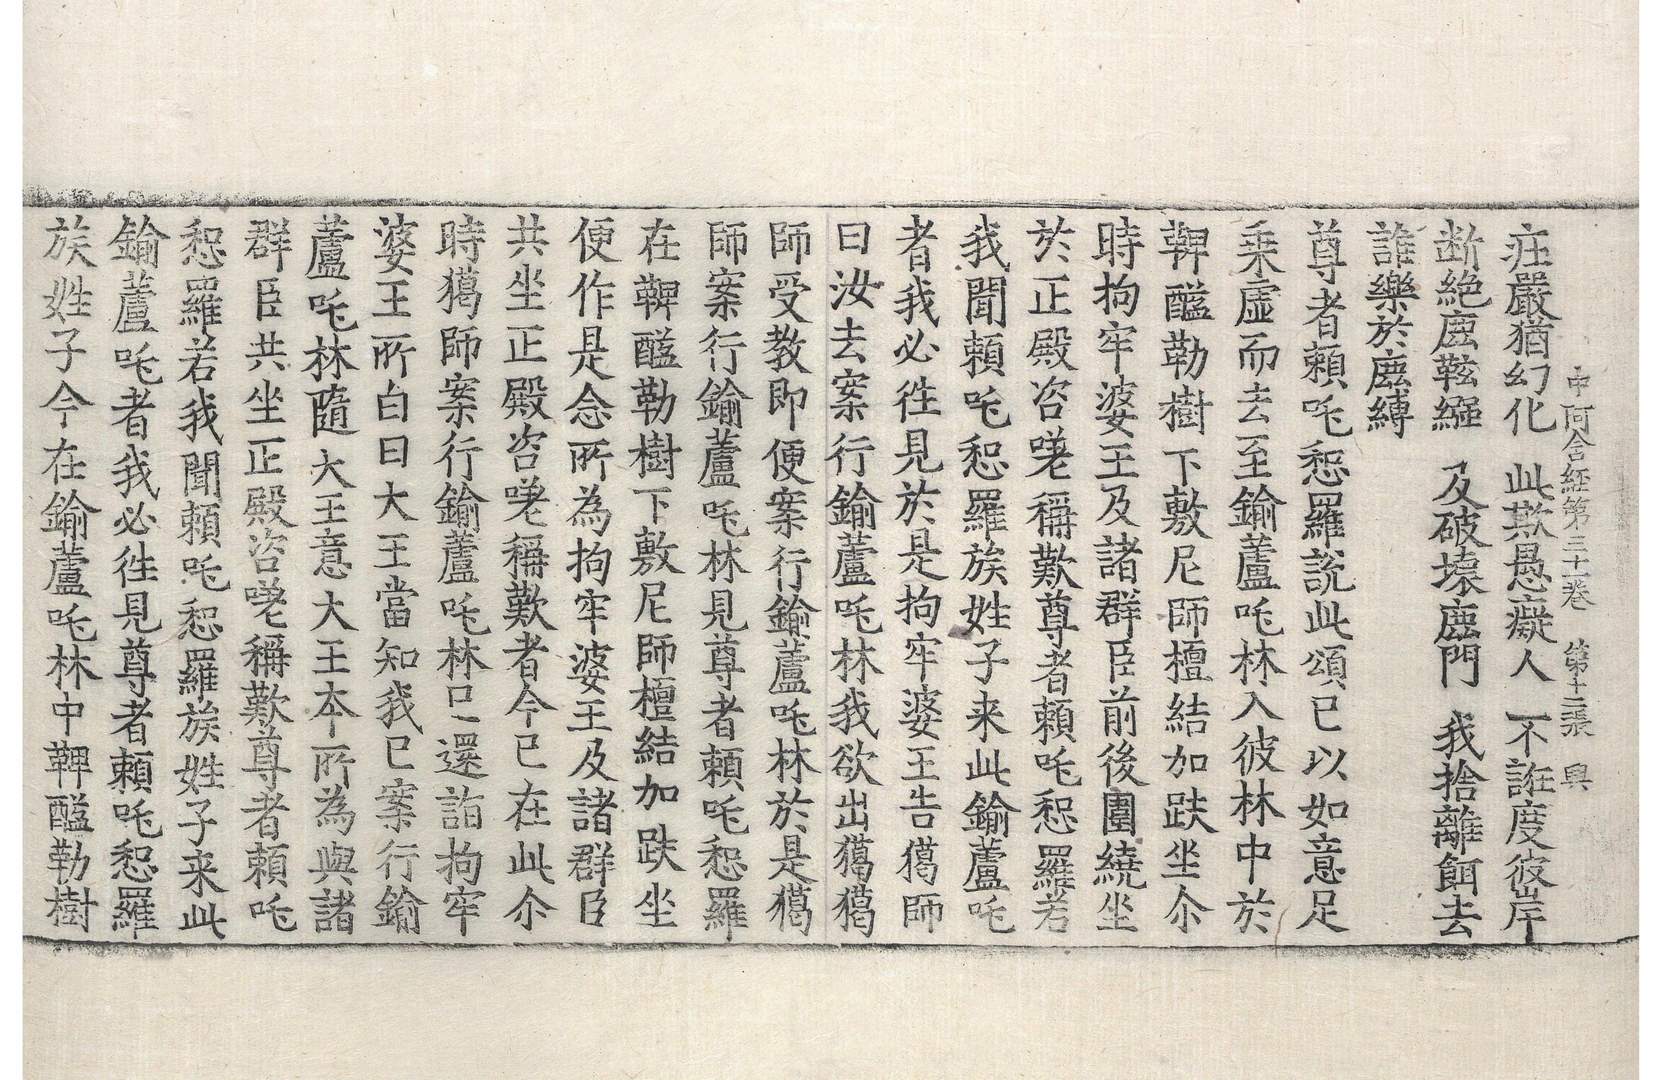 中阿含經第三十一卷　第十二張　興
庄嚴猶幻化　此欺愚癡人　不誑度彼岸
断絶鹿　及破壞鹿門　我捨離餌去
誰樂於鹿縛
尊者頼吒惒羅說此頌已以如意足
乗虛而去至鍮蘆吒林入彼林中於
鞞醯勒樹下敷尼師檀結加趺坐尒
時拘牢婆王及諸群臣前後圍繞坐
於正殿咨嗟稱歎尊者頼吒惒羅若
我聞頼吒惒羅族姓子来此鍮蘆吒
者我必徃見於是拘牢婆王告獦師
曰汝去案行鍮蘆吒林我欲出獦獦
師受教即便案行鍮蘆吒林於是獦
師案行鍮蘆吒林見尊者頼吒惒羅
在鞞醯勒樹下敷尼師檀結加趺坐
便作是念所為拘牢婆王及諸群臣
共坐正殿咨嗟稱歎者今已在此尒
時獦師案行鍮蘆吒林已還詣拘牢
婆王所白曰大王當知我已案行鍮
蘆吒林隨大王意大王本所為與諸
群臣共坐正殿咨嗟稱歎尊者頼吒
惒羅若我聞頼吒惒羅族姓子来此
鍮蘆吒者我必徃見尊者頼吒惒羅
族姓子今在鍮蘆吒林中鞞醯勒樹